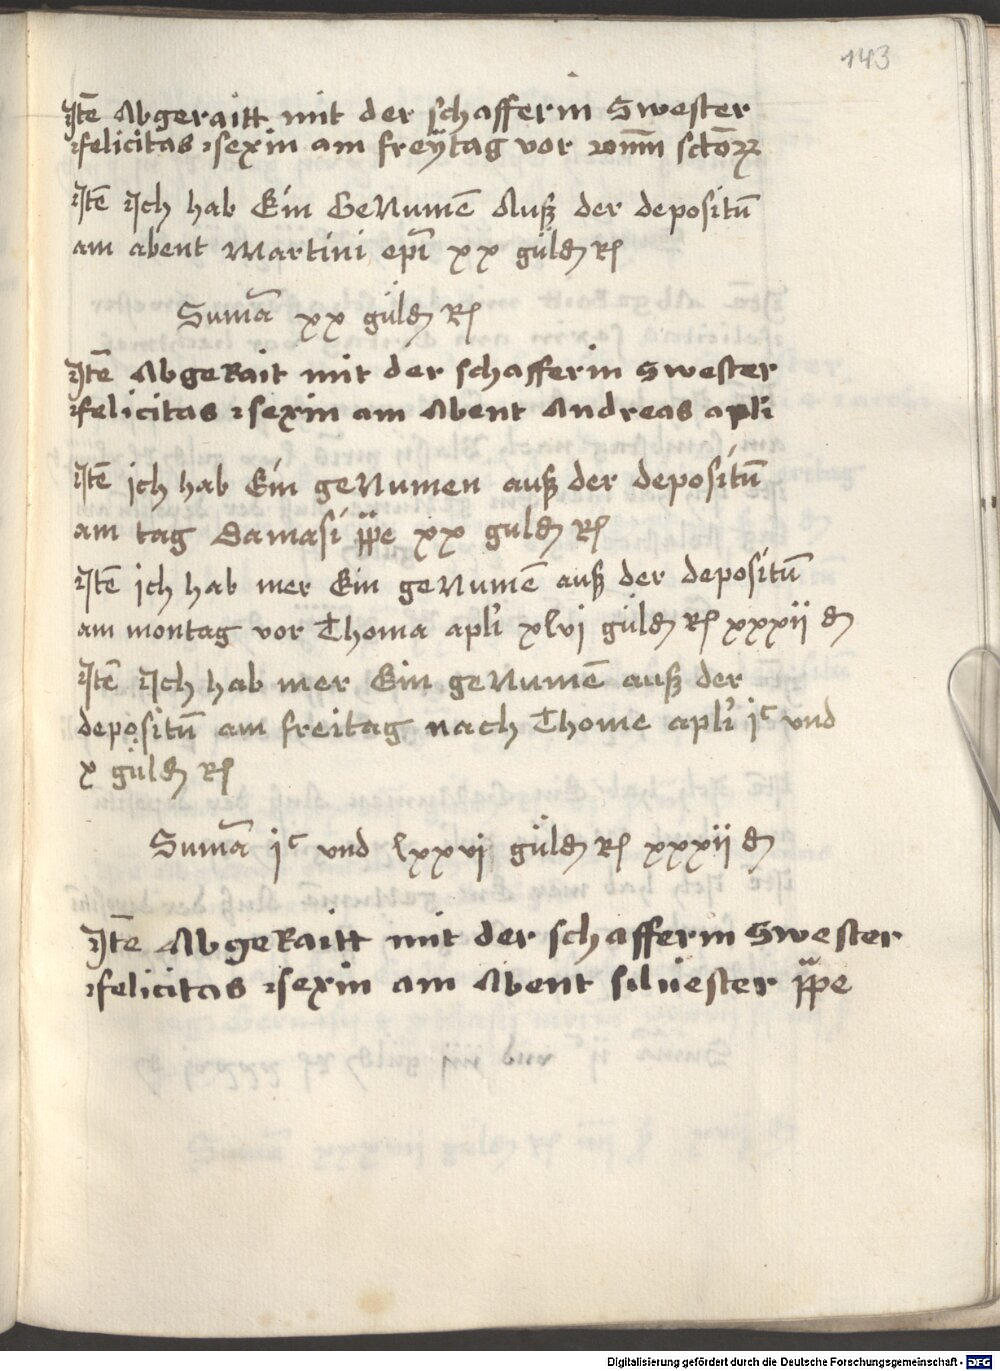 143
Jtē Abgeraitt mit der schafferin Swester
felicitas sexin am freÿtag vor om̄m sctōꝝ
Jtē Jch hab Ein GeNumē Auß der depositū
am abent Martini epī xx güldꝫ Rꝭ
Sum̄a xx güldꝫ Rꝭ
Jtē AbgeRait mit der schafferin Swester
felicitas sexin am Abent Andreas apłi
Jtē jch hab Ein geNumen auß der depositū
am tag Damasi p̈pe xx guldꝫ Rꝭ
Jtē ich hab mer Ein geNumē auß der depositū
am montag vor Thoma apłi xlvj güldꝫ Rꝭ xxxij ₰
Jtē Jch hab mer Ein geNumē auß der
depositū am freitag nach Thome apłi jᶜ vnd
x güldꝫ Rꝭ
Sum̄a jᶜ vnd lxxvj güldꝫ Rꝭ xxxij ₰
Jtē AbgeRaitt mit der schafferin Swester
felicitas sexin am Abent siluester p̈pe
Digitalisierung gefördert durch die Deutsche Forschungsgemeinschaft - DFG